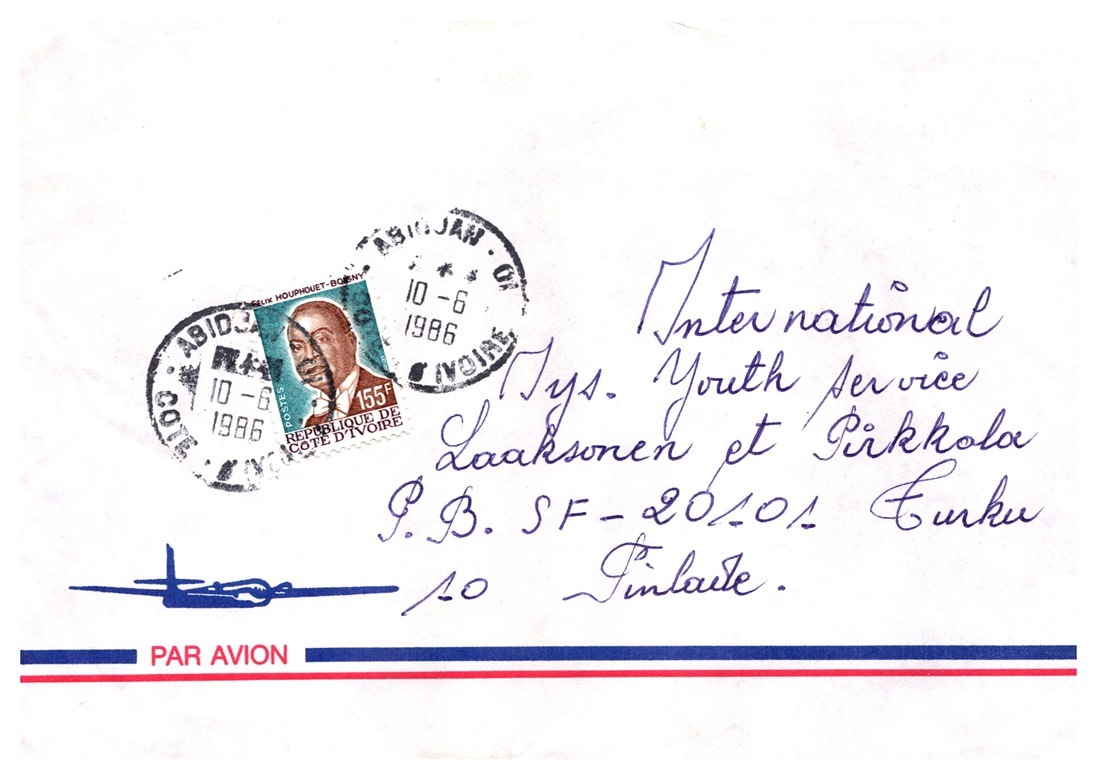 FELIX HOUPHOUET-BOIGNY
POSTES
155F
REPUBLIQUE DE
COTE D'IVOIRE
ABIDJAN
10-6
1986
IVOIRE
ABIDJAN
10-6
1986
International
Iys. Youth Service
Laaksonen et Pirkkola
P.B. SF-20101 Turku
10 Finlade.
PAR AVION